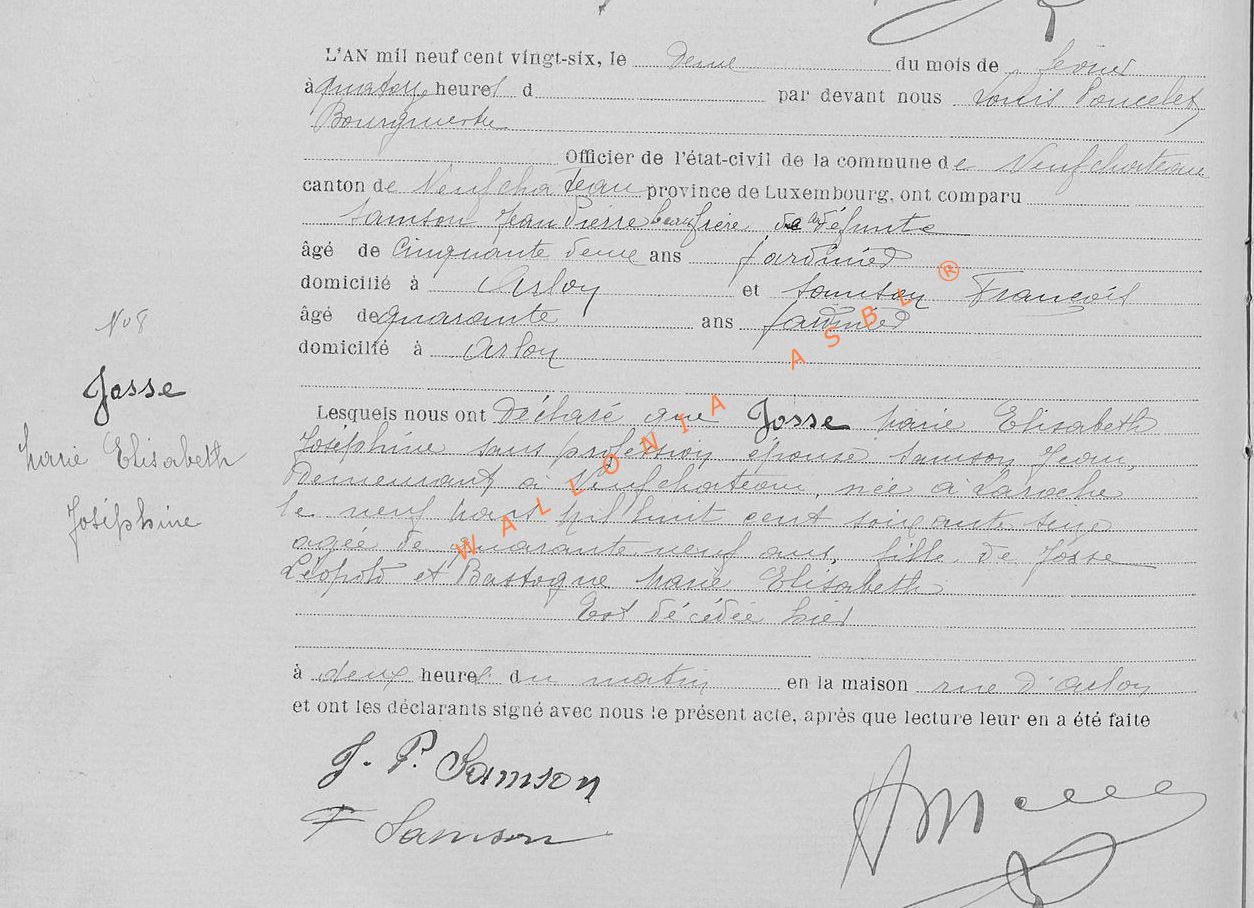 L'AN mil neuf cent vingt-six, le deux du mois de février
à quatorze heures d par devant nous Louis Poncelet
Bourgmestre
Officier de l'état-civil de la commune de Neufchateau
canton de Neufchateau province de Luxembourg, ont comparu
Samson Jean Pierre beau frère de la défunte
âgé de cinquante deux ans jardinier
domicilié à Arlon et Samson François
âgé de quarante ans jardinier
domicilié à Arlon
No 8
Josse
Marie Elisabeth
Joséphine
Lesquels nous ont déclaré que Josse Marie Elisabeth
Joséphine sans profession épouse Samson Jean,
demeurant à Neufchateau, née à Laroche
le neuf mars mil huit cent soixante seize
agée de quarante neuf ans, fille de Josse
Léopold et Bastogne Marie Elisabeth
Est décédée hier
à deux heures du matin en la maison rue d'Arlon
et ont les déclarants signé avec nous le présent acte, après que lecture leur en a été faite
J. P. Samson
F Samson
WALLONIA ASBL ®